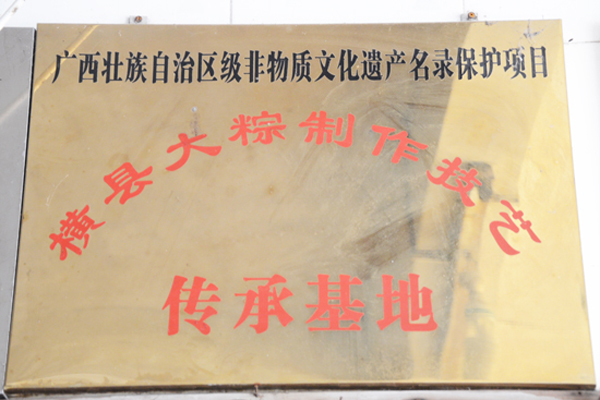 广西壮族自治区级非物质文化遗产名录保护项目
横县大粽制作技艺
传承基地